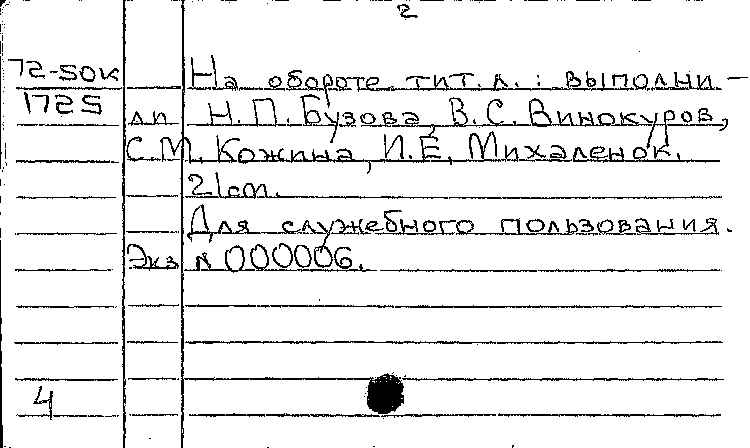 2
72-50к На обороте тит. л.: выполни-
1725 ли Н.П. Бузова, В.С. Винокуров,
С.М. Кожина, И.Е. Михаленок.
21 cm.
Для служебного пользования.
Экз N 000006.
4